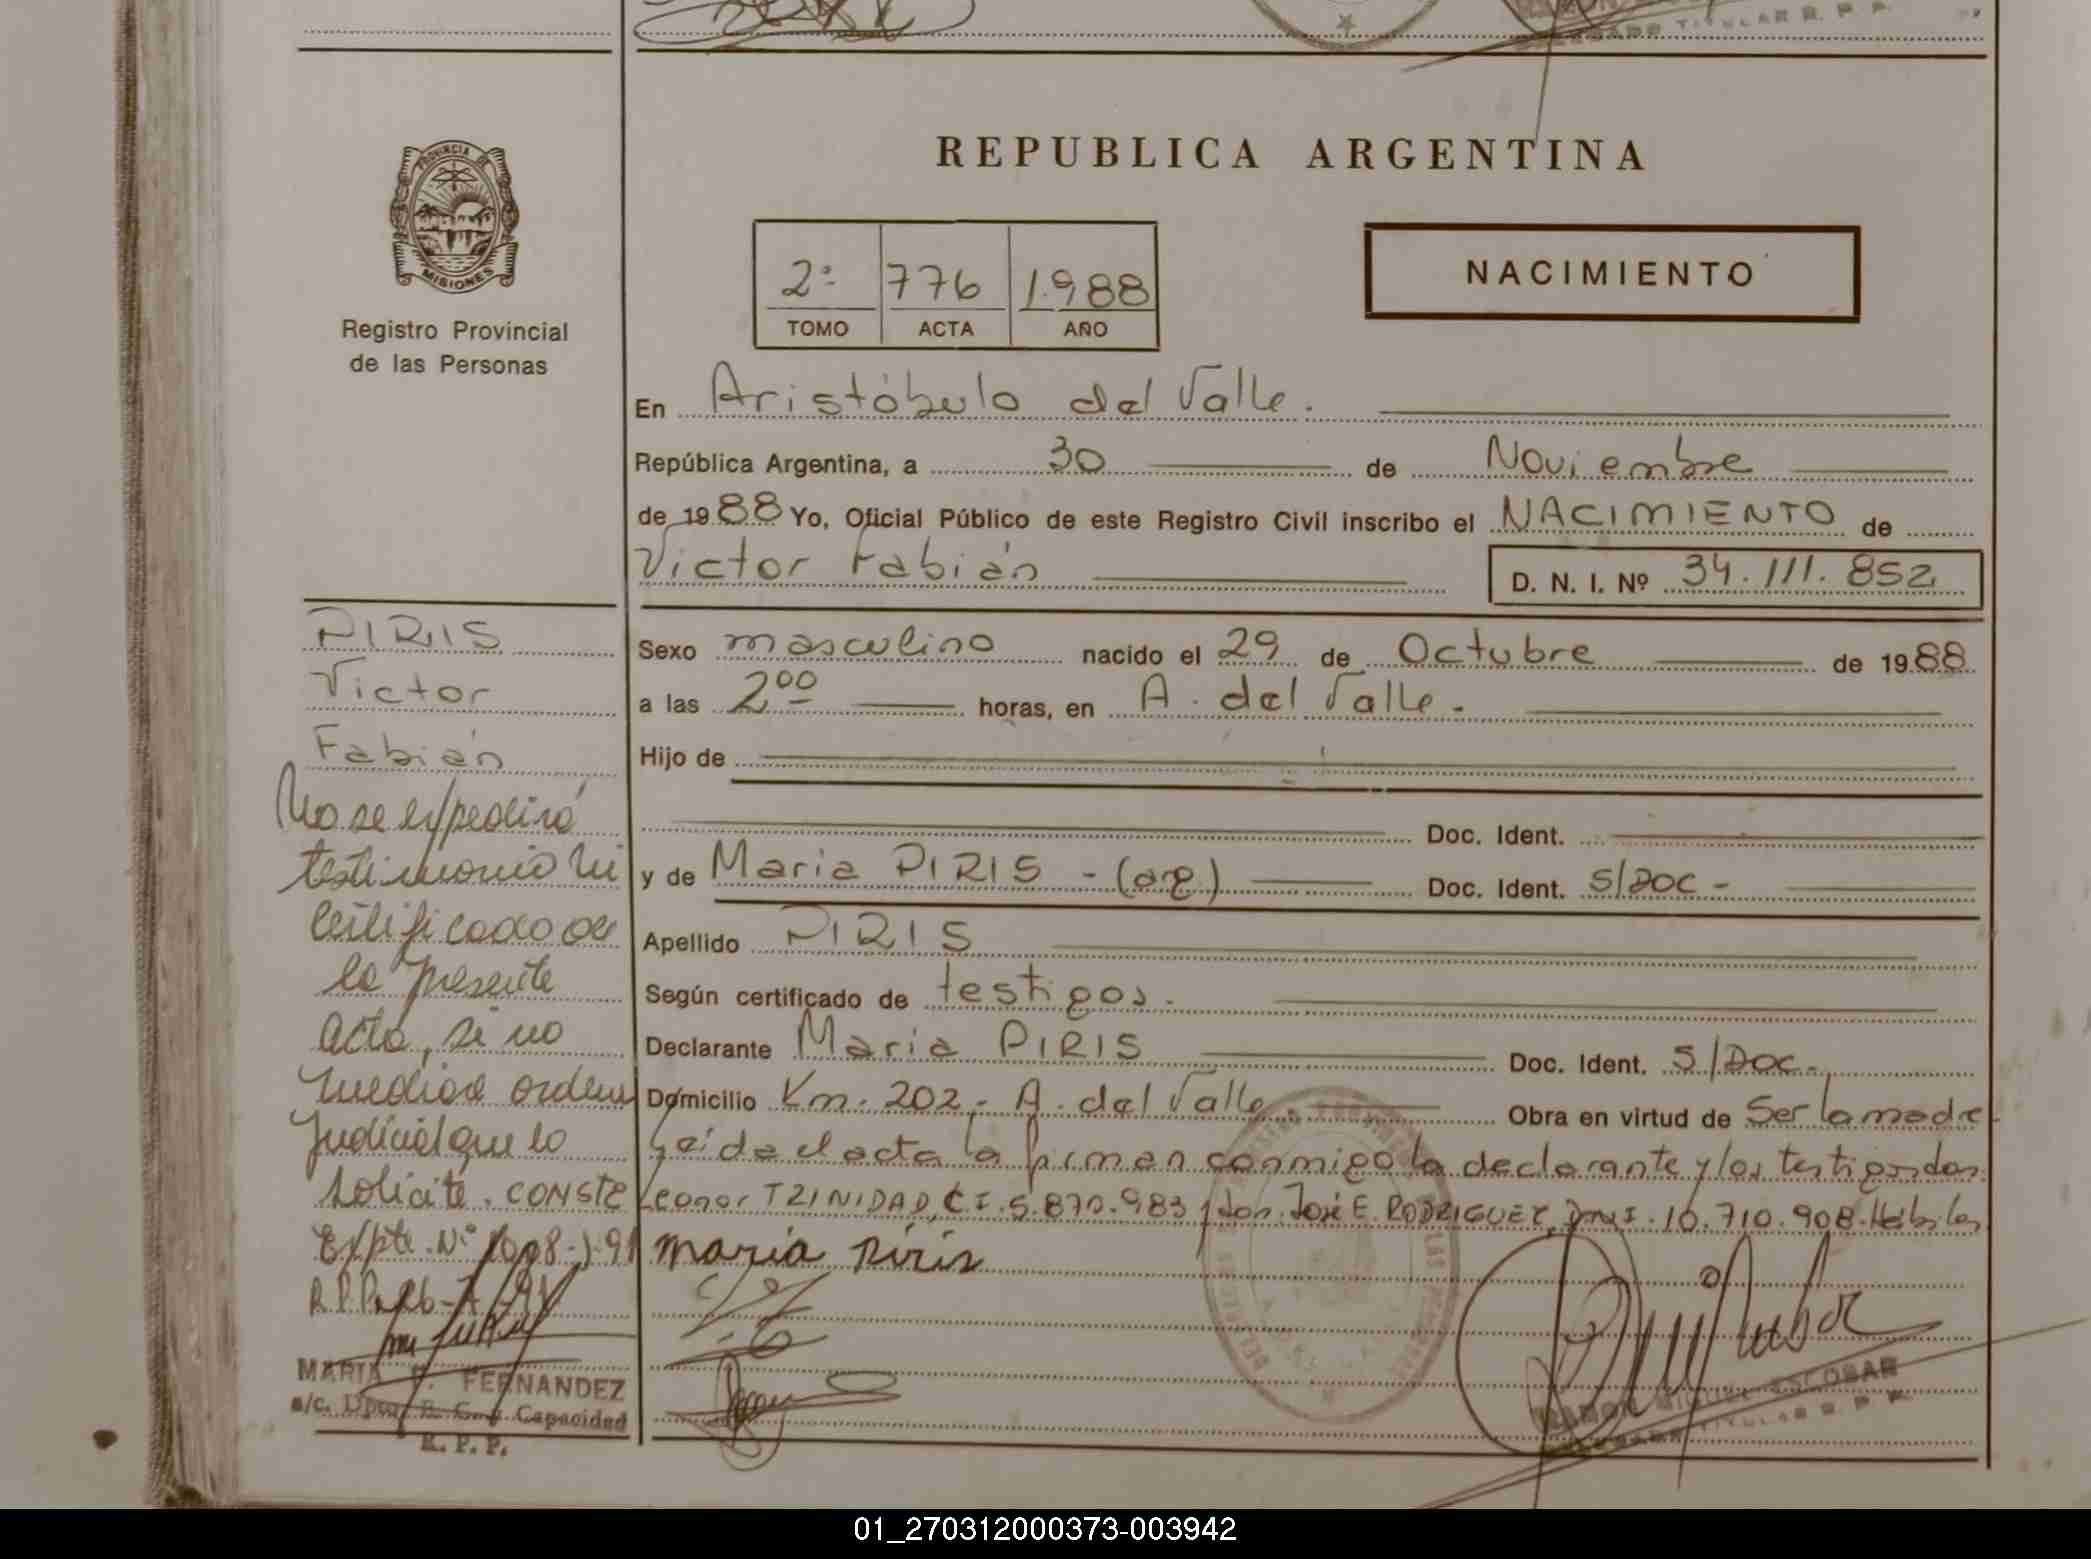 REPUBLICA ARGENTINA
PROVINCIA DE
MISIONES
Registro Provincial
de las Personas
2º 776 1.988
TOMO ACTA AÑO
NACIMIENTO
En Aristóbulo del Valle.
República Argentina, a 30 de Noviembre
de 1988 Yo, Oficial Público de este Registro Civil inscribo el NACIMIENTO de
Victor Fabián D. N. I. Nº 34.111.852
Sexo masculino nacido el 29 de Octubre de 1988
a las 2⁰⁰ horas, en A. del Valle.
Hijo de
Doc. Ident.
y de Maria PIRIS - (arg) Doc. Ident. S/DOC -
Apellido PIRIS
Según certificado de testigos.
Declarante Maria PIRIS Doc. Ident. S/DOC.-
Domicilio Km. 202,- A. del Valle. Obra en virtud de Ser la madre
Leída el acta la firman conmigo la declarante y los testigos don
Leonor TRINIDAD, C.I. 5.870.983 y don José E. RODRIGUEZ, DNI. 10.710.908. Hábiles
maria Piris
RAMON MIGUEL ESCOBAR
DELEGADO TITULAR R. P. P.
PIRIS
Victor
Fabián
No se expedirá
testimonio ni
certificado de
la presente
acta, si no
mediare orden
Judicial que lo
solicite. CONSTE
Expte. Nº
R.P.P.
MARIA FERNANDEZ
a/c. Dpto. R. C. y Capacidad
R. P. P.
01_270312000373-003942